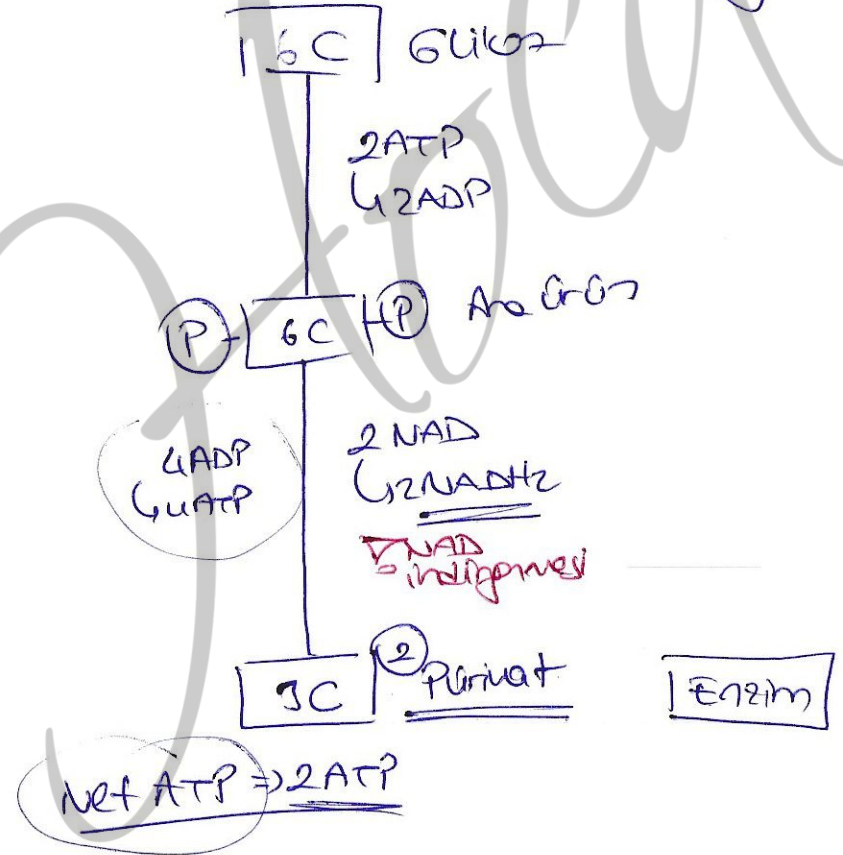 6C Glikoz
2ATP
↳2ADP
P 6C P Ara ürün
4ADP
↳4ATP
2NAD
↳2NADH2
NAD
indirgenmesi
3C 2 Pürivat
Enzim
Net ATP ⇒ 2ATP